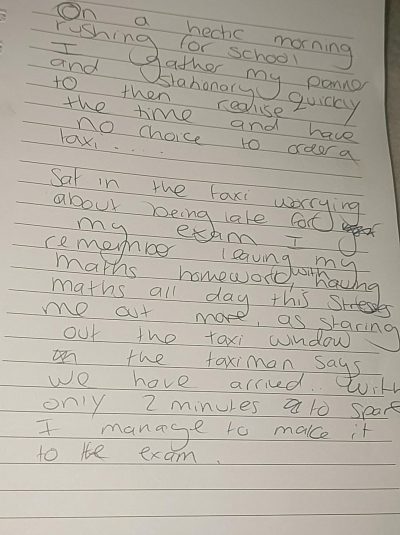 On a hectic morning
rushing for school
I gather my planner
and stationary quickly
to then realise
the time and have
no choice to order a
taxi.....
Sat in the taxi worrying
about being late for
my exam I
remember leaving my
maths homework, with having
maths all day this stresses
me out more, as staring
out the taxi window
the taximan says
we have arrived.. with
only 2 minutes to spare
I manage to make it
to the exam.